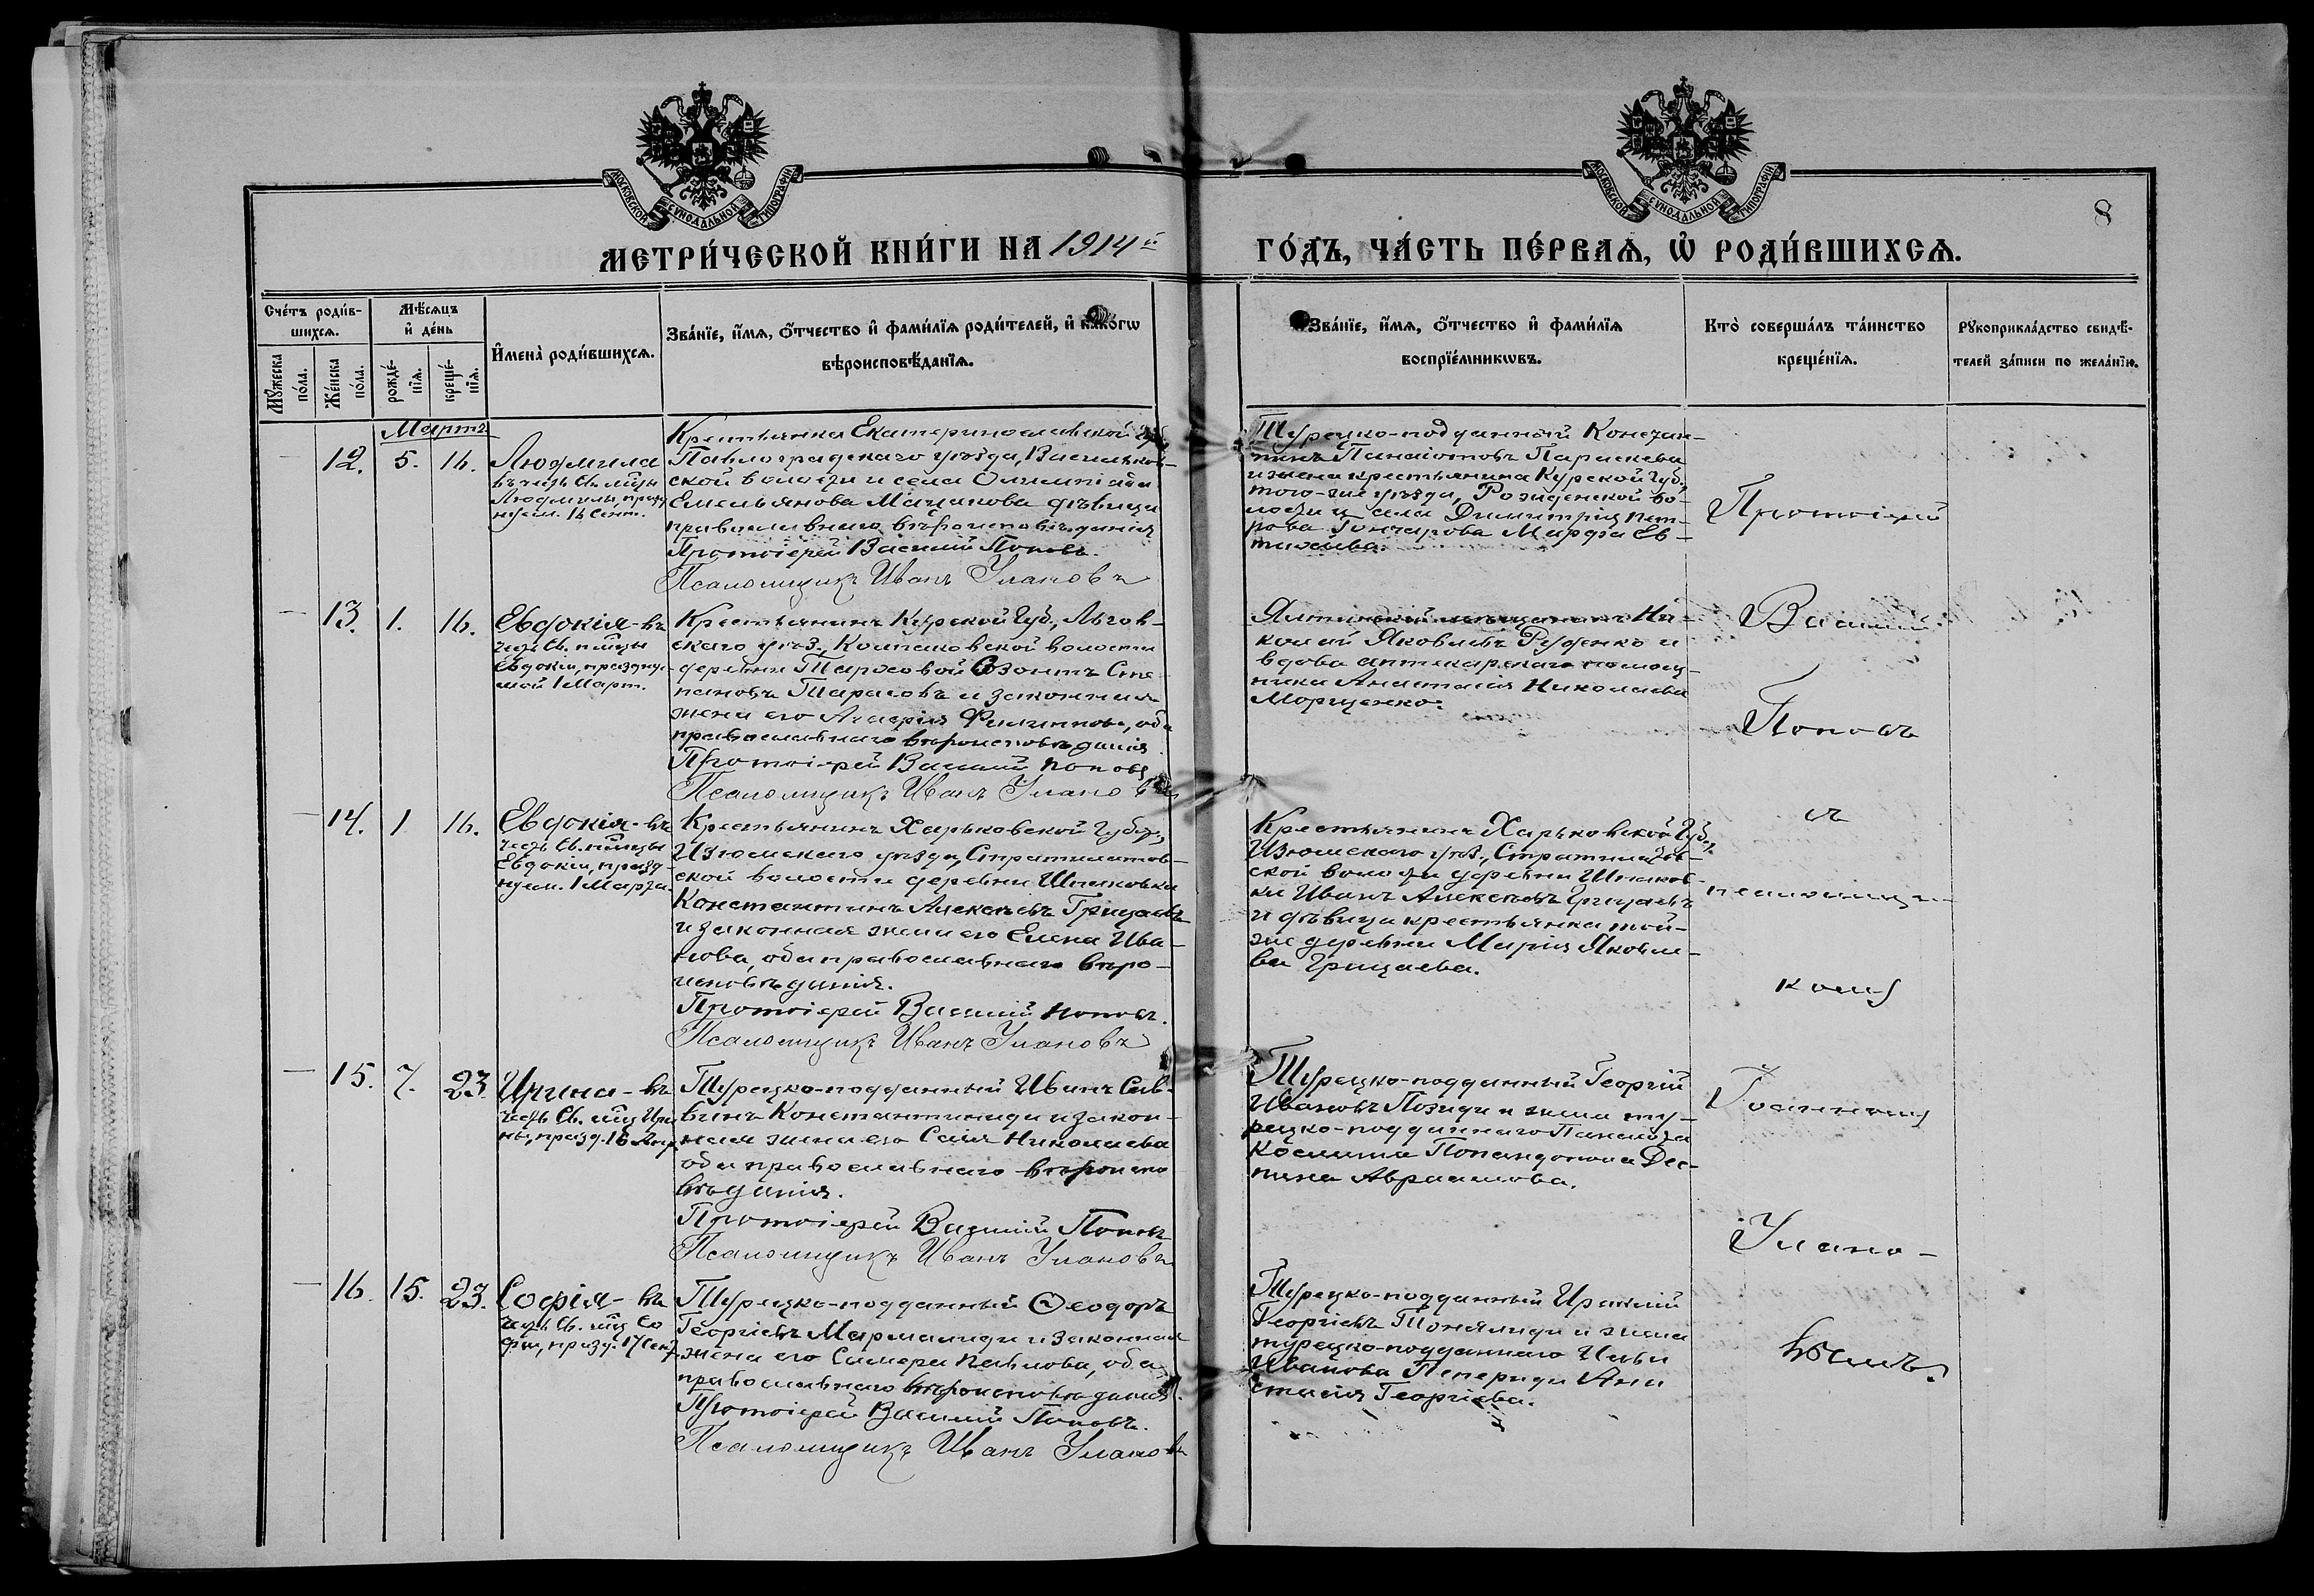 МОСКОВСКОЙ СѴНОДАЛЬНОЙ ТИПОГРАФІИ
МОСКОВСКОЙ СѴНОДАЛЬНОЙ ТИПОГРАФІИ
8
МЕТРИ́ЧЕСКОЙ КНИ́ГИ НА 1914й
ГО́ДЪ, ЧА́СТЬ ПЕ́РВАѦ, Ѡ҆ РОДИ́ВШИХСѦ.
Сче́тъ роди́в-
шихсѧ.
Мѣ́сѧцъ
и҆ де́нь
Мꙋ́жеска
по́ла.
Же́нска
по́ла.
рожде́-
нїѧ.
креще́-
нїѧ.
И҆мена̀ роди́вшихсѧ.
Зва́нїе, и҆́мѧ, ѻ҆́тчество и҆ фами́лїѧ роди́телей, и҆ како́гѡ
вѣроисповѣ́данїѧ.
Зва́нїе, и҆́мѧ, ѻ҆́тчество и҆ фами́лїѧ
воспрїе́мникѡвъ.
Кто̀ соверша́лъ та́инство
креще́нїѧ.
Рꙋкоприкла́дство свидѣ́-
телей за́писи по жела́нїю.
Мартъ
12. 5. 16.
Людмила
въ честь Св. мцы
Людмилы, празд
нуем. 16 Сент.
Крестьянка Екатеринославской губ.
Павлоградскаго уѣзда, Васильков-
ской волости и села Олимпіада
Емельянова Мачахова дѣвица
православнаго вѣроисповѣданія
Протоіерей Василій Поповъ.
Псаломщикъ Иванъ Улановъ
Турецко-подданный Констан-
тинъ Панаіотовъ Параскева
и жена крестьянина Курской Губ.,
того-же уѣзда, Рожденской во-
лости и села Димитрія Пет-
рова Гончарова Марфа Ев-
тихіева.
13. 1. 16.
Евдокія - въ
честь Св. пмцы
Евдокіи, празднуе-
мой 1 Март.
Крестьянинъ Курской Губ., Льгов-
скаго уѣз., волости
деревни Тарасовой Созонтъ Сте-
пановъ Тарасовъ и законная
жена его Агафія Филиппова, оба
православнаго вѣроисповѣданія
Протоіерей Василій Поповъ
Псаломщикъ Иванъ Улановъ
Ялтинскій мѣщанинъ Ни-
колай Яковлевъ Руденко и
вдова аптекарскаго помощ-
ника Анастасія Николаева
Моргценко.
14. 1 16.
Евдокія - въ
честь Св. пмцы
Евдокіи, празд
нуем. 1 Марта.
Крестьянинъ Харьковской Губер.,
Изюмскаго уѣзда, Стратилатов-
ской волости деревни Шпаковки
Константинъ Алексѣевъ Грицаевъ
и законная жена его Елена Ива-
нова, оба православнаго вѣро-
исповѣданія.
Протоіерей Василій Поповъ.
Псаломщикъ Иванъ Улановъ
Крестьянинъ Харьковской Губ.,
Изюмскаго уѣз., Стратилатов-
ской волости деревни Шпаков-
ки Иванъ Алексѣевъ Грицаевъ
и дѣвица крестьянка той-
же деревни Марія Яковле-
ва Грицаева.
15. 7. 23
Ирина - въ
честь Св. мцы Ири
ны, празд. 16 Апр.
Турецко-подданный Иванъ Сав-
винъ Константиниди и закон-
ная жена его Софія Николаева
оба православнаго вѣроиспо
вѣданія.
Протоіерей Василій Поповъ
Псаломщикъ Иванъ Улановъ
Турецко-подданный Георгій
Ивановъ Позиди и жена ту-
рецко-подданнаго Панаіота
Космина Попандопола Дес-
пина Авраамова.
16. 15. 23.
Софія - въ
честь Св. мцы Со
фіи, празд. 17 Сент.
Турецко-подданный Ѳеодоръ
Георгіевъ Мармалиди и законная
жена его Симера Павлова, оба
православнаго вѣроисповѣданія.
Протоіерей Василій Поповъ.
Псаломщикъ Иванъ Улановъ
Турецко-подданный Ираклій
Георгіевъ и жена
турецко-подданнаго Ильи
Иванова Пипериди Ана
стасія Георгіева.
Протоіерей
Василій
Поповъ
съ
псаломщи-
комъ
Іоанномъ
Улано-
вымъ.